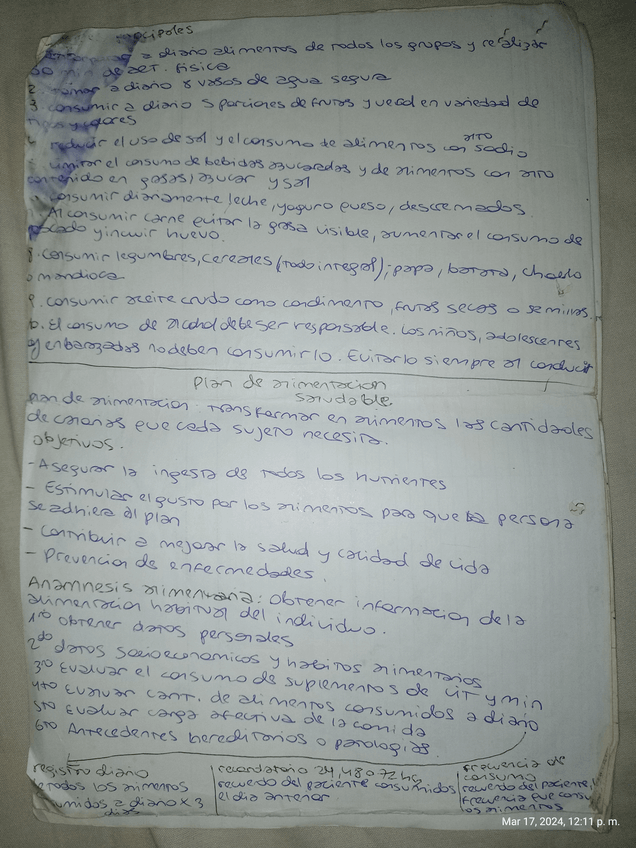 principales
a diario alimentos de todos los grupos y realizar
30 min de act. fisica
2. tomar a diario 8 vasos de agua segura
3 consumir a diario 5 porciones de frutas y verd en variedad de
tipos y colores
4 reducir el uso de sal y el consumo de alimentos con alto sodio
limitar el consumo de bebidas azucaradas y de alimentos con alto
contenido en grasas, azucar y sal
consumir diariamente leche, yoguro queso, descremados
Al consumir carne evitar la grasa visible, aumentar el consumo de
pescado y incluir huevo.
8. consumir legumbres, cereales (todo integral); papa, batata, choclo
o mandioca
9. consumir aceite crudo como condimento, frutas secas o semillas.
10. El consumo de alcohol debe ser responsable. Los niños, adolescentes
y embarazadas no deben consumirlo. Evitarlo siempre al conducir
Plan de alimentacion
saludable
Plan de alimentacion. Transformar en alimentos las cantidades
de calorias que cada sujeto necesita.
objetivos.
- Asegurar la ingesta de todos los nutrientes
- Estimular el gusto por los alimentos para que la persona
se adhiera al plan
- Contribuir a mejorar la salud y calidad de vida
- Prevencion de enfermedades.
Anamnesis alimentaria: Obtener informacion de la
alimentacion habitual del individuo.
1ro obtener datos personales
2do datos socioeconomicos y habitos alimentarios
3ro Evaluar el consumo de suplementos de vit y min
4to Evaluar cant. de alimentos consumidos a diario
5to Evaluar carga afectiva de la comida
6to Antecedentes hereditarios o patologias
registro diario
de todos los alimentos
consumidos a diario x 3
dias
recordatorio 24, 48 o 72 hs
recuerdo del paciente consumidos
el dia anterior
frecuencia de
consumo
recuerdo del paciente,
frecuencia que consu
los alimentos
Mar 17, 2024, 12:11 p. m.